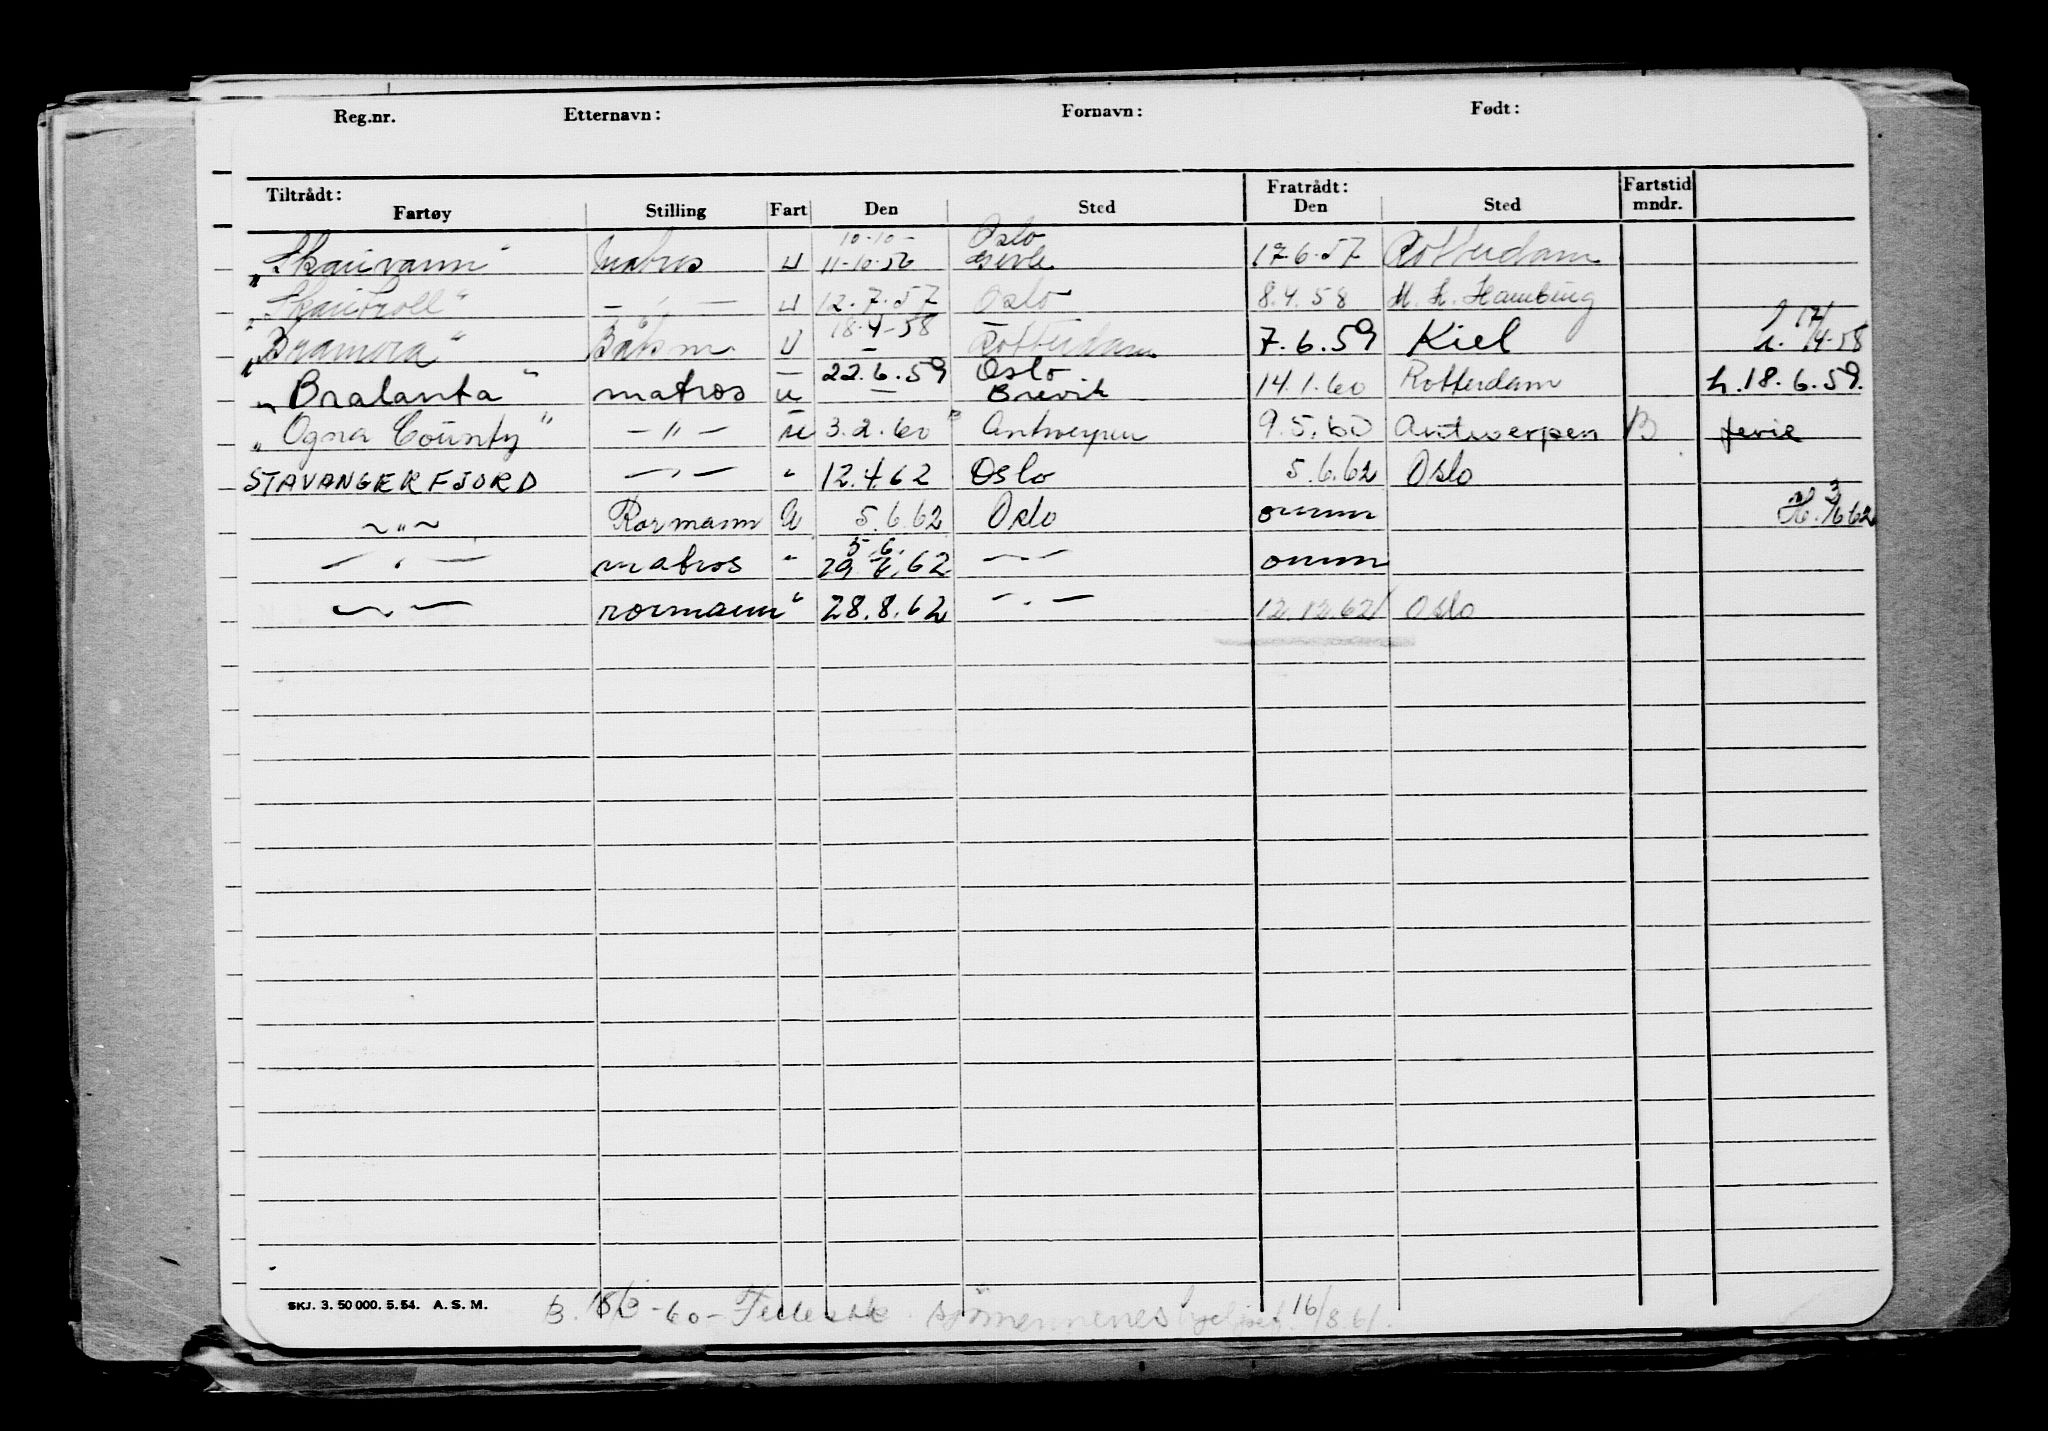 Reg.nr. Etternavn: Fornavn: Født:
Tiltrådt: Fratrådt: Fartstid
Fartøy Stilling Fart Den Sted Den Sted mndr.
10-10- Oslo
„Skauvann" Matros u 11-10-56 Gevle 17-6-57 Rotterdam
„Skautroll" — „ — u 12.7.57 Oslo 8.4.58 M. h. Hamburg
18-4-58 17/
„Bramora" Båtsm u — Rotterdam 7.6.59 Kiel h. 4-58
22.6.59 Oslo
„Bralanta" matros u — Brevik 14.1.60 Rotterdam h. 18.6.59.
„Ogna County" — " — u 3.2.60 Antwerpen 9.5.60 Antwerpen B ferie
STAVANGERFJORD — „ — " 12.4.62 Oslo 5.6.62 Oslo
— „ — Rormann U 5.6.62 Oslo omm
5.6.
— „ — matros " 29. 62 — „ — omm
— „ — rormann " 28.8.62 — „ — 12.12.62 Oslo
SKJ. 3. 50 000. 5. 54. A. S. M.
B. -60- 16/8.61.